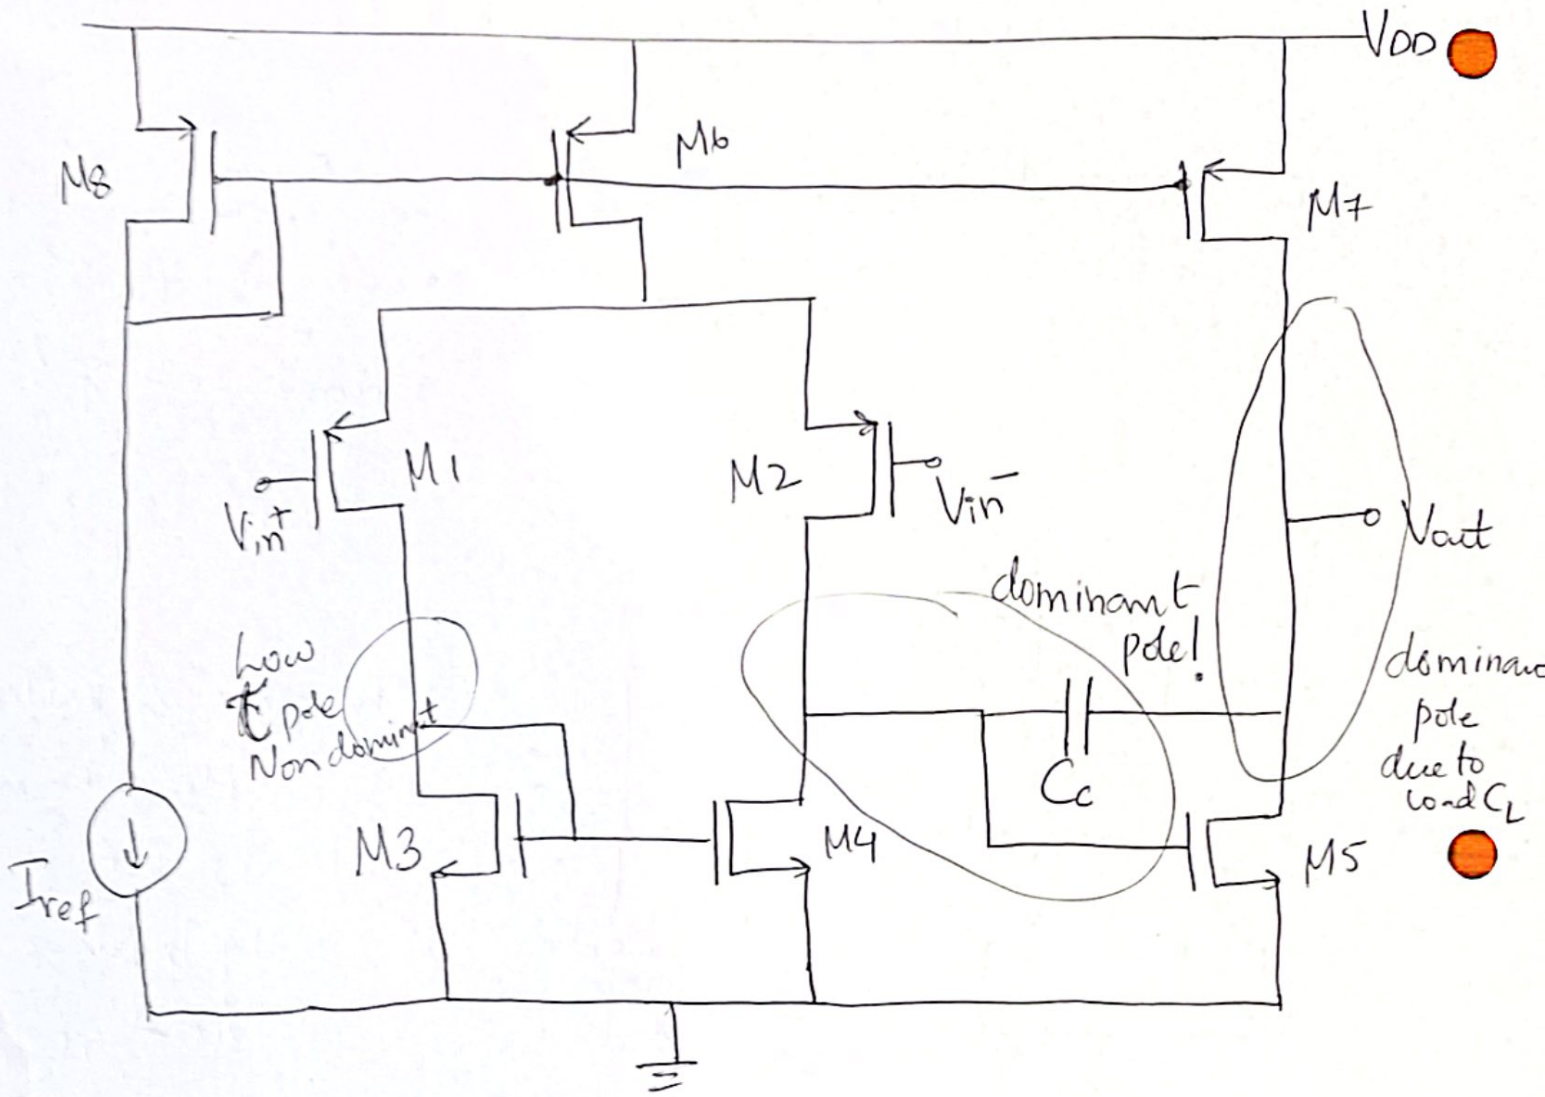 VDD
M8
M6
M7
M1
Vin+
M2
Vin-
Vout
dominant
pole!
Low
pole
Non dominant
dominant
pole
due to
load CL
Cc
M3
M4
M5
Iref